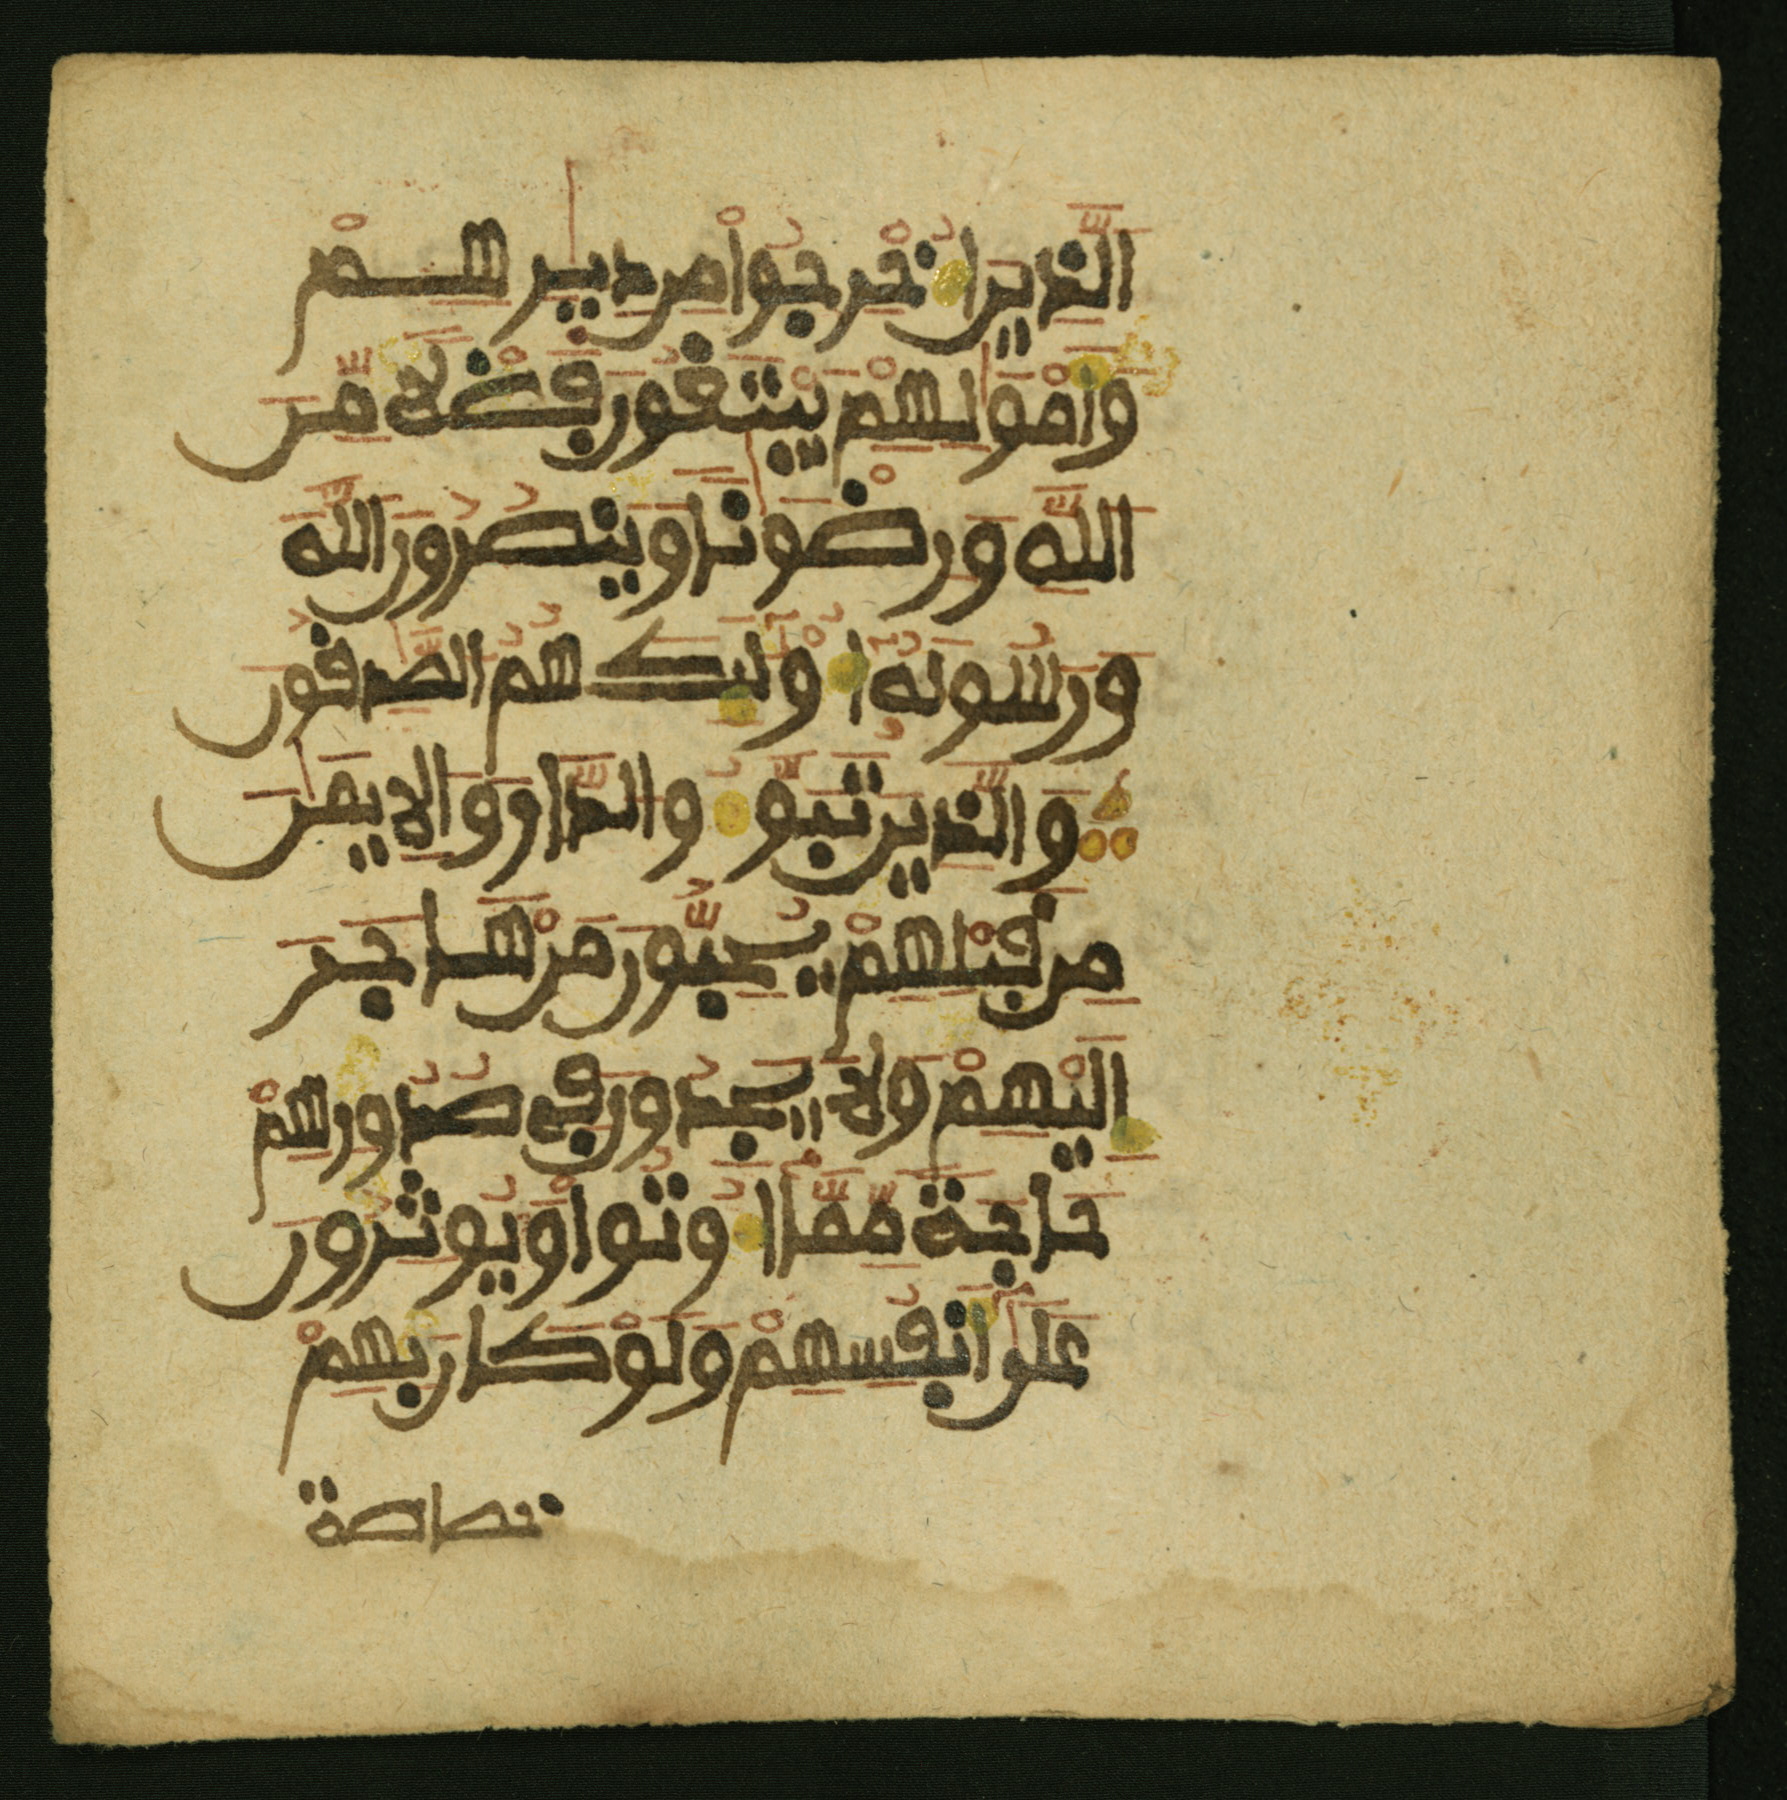 الَّذِينَ أُخْرِجُوا مِن دِيٰرِهِمْ
وَأَمْوَٰلِهِمْ يَبْتَغُونَ فَضْلًا مِّنَ
اللَّهِ وَرِضْوَٰنًا وَيَنصُرُونَ اللَّهَ
وَرَسُولَهُ أُوْلَٰئِكَ هُمُ الصَّٰدِقُونَ
وَالَّذِينَ تَبَوَّءُو الدَّارَ وَالْإِيمَٰنَ
مِن قَبْلِهِمْ يُحِبُّونَ مَنْ هَاجَرَ
إِلَيْهِمْ وَلَا يَجِدُونَ فِي صُدُورِهِمْ
حَاجَةً مِّمَّا أُوتُوا وَيُوثِرُونَ
عَلَىٰ أَنفُسِهِمْ وَلَوْ كَانَ بِهِمْ
خصاصة